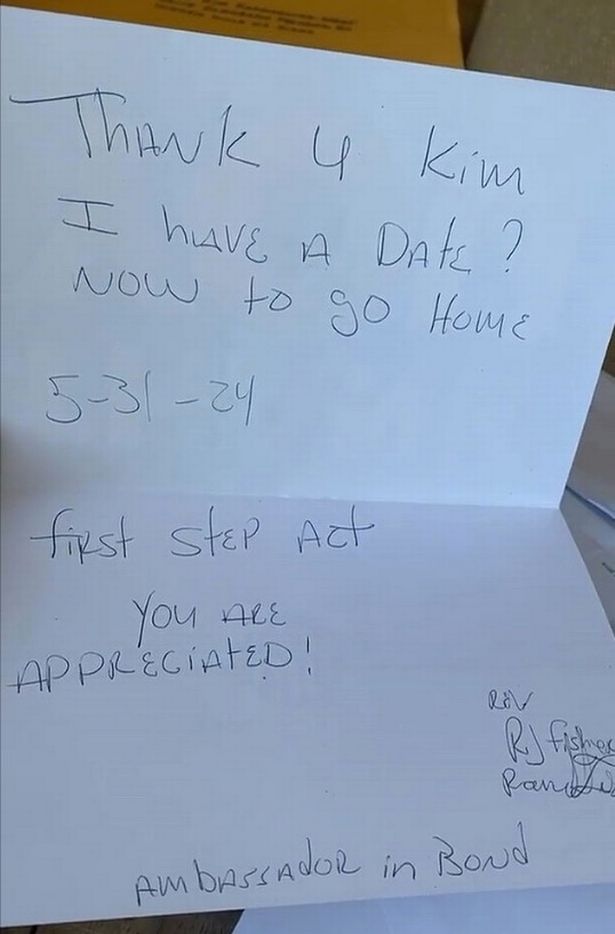 THANK 4 Kim
I HAVE A DATE?
NOW to go HOME
5-31-24
first StEP Act
You ARE
APPRECIATED!
REV
RJ fisher
AMbASSAdOR in BONd